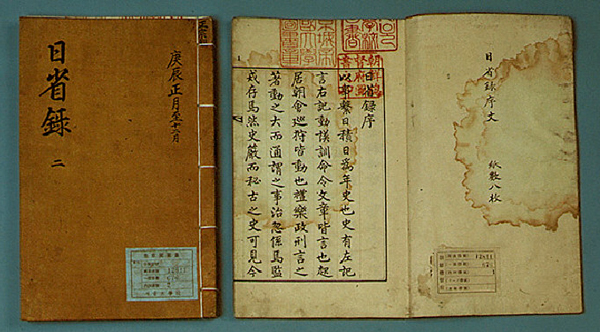 日省錄 二
庚辰正月至十二月
日省錄序文
紙數八枚
日省錄序
以事繫日積日爲年史也史有左記
言右記動謨訓命令文章皆言也起
居朝會巡狩皆動也禮樂政刑言之
著動之大而通謂之事治忽係焉監
戒存焉然史嚴而秘古之史可見今